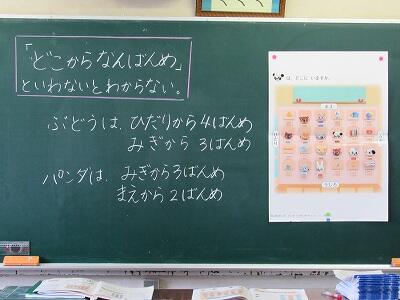 「どこからなんばんめ」
といわないとわからない。
ぶどうは、ひだりから4ばんめ
みぎから 3ばんめ
パンダは、みぎから3ばんめ
まえから2ばんめ
は、どこに いますか。
まえ
ひだり
みぎ
うしろ